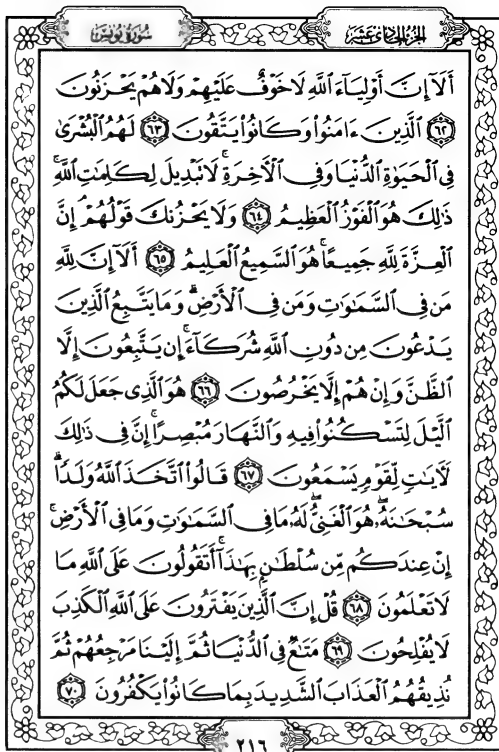 سُورَةُ يُونُسَ
الجُزْءُ الحَادِي عَشَرَ
أَلَآ إِنَّ أَوْلِيَآءَ ٱللَّهِ لَا خَوْفٌ عَلَيْهِمْ وَلَا هُمْ يَحْزَنُونَ
٦٢ ٱلَّذِينَ ءَامَنُوا۟ وَكَانُوا۟ يَتَّقُونَ ٦٣ لَهُمُ ٱلْبُشْرَىٰ
فِى ٱلْحَيَوٰةِ ٱلدُّنْيَا وَفِى ٱلْـَٔاخِرَةِ ۚ لَا تَبْدِيلَ لِكَلِمَٰتِ ٱللَّهِ ۚ
ذَٰلِكَ هُوَ ٱلْفَوْزُ ٱلْعَظِيمُ ٦٤ وَلَا يَحْزُنكَ قَوْلُهُمْ ۘ إِنَّ
ٱلْعِزَّةَ لِلَّهِ جَمِيعًا ۚ هُوَ ٱلسَّمِيعُ ٱلْعَلِيمُ ٦٥ أَلَآ إِنَّ لِلَّهِ
مَن فِى ٱلسَّمَٰوَٰتِ وَمَن فِى ٱلْأَرْضِ ۗ وَمَا يَتَّبِعُ ٱلَّذِينَ
يَدْعُونَ مِن دُونِ ٱللَّهِ شُرَكَآءَ ۚ إِن يَتَّبِعُونَ إِلَّا
ٱلظَّنَّ وَإِنْ هُمْ إِلَّا يَخْرُصُونَ ٦٦ هُوَ ٱلَّذِى جَعَلَ لَكُمُ
ٱلَّيْلَ لِتَسْكُنُوا۟ فِيهِ وَٱلنَّهَارَ مُبْصِرًا ۚ إِنَّ فِى ذَٰلِكَ
لَـَٔايَٰتٍ لِّقَوْمٍ يَسْمَعُونَ ٦٧ قَالُوا۟ ٱتَّخَذَ ٱللَّهُ وَلَدًا ۗ
سُبْحَٰنَهُۥ ۖ هُوَ ٱلْغَنِىُّ ۖ لَهُۥ مَا فِى ٱلسَّمَٰوَٰتِ وَمَا فِى ٱلْأَرْضِ ۚ
إِنْ عِندَكُم مِّن سُلْطَٰنٍۭ بِهَٰذَآ ۚ أَتَقُولُونَ عَلَى ٱللَّهِ مَا
لَا تَعْلَمُونَ ٦٨ قُلْ إِنَّ ٱلَّذِينَ يَفْتَرُونَ عَلَى ٱللَّهِ ٱلْكَذِبَ
لَا يُفْلِحُونَ ٦٩ مَتَٰعٌ فِى ٱلدُّنْيَا ثُمَّ إِلَيْنَا مَرْجِعُهُمْ ثُمَّ
نُذِيقُهُمُ ٱلْعَذَابَ ٱلشَّدِيدَ بِمَا كَانُوا۟ يَكْفُرُونَ ٧٠
٢١٦